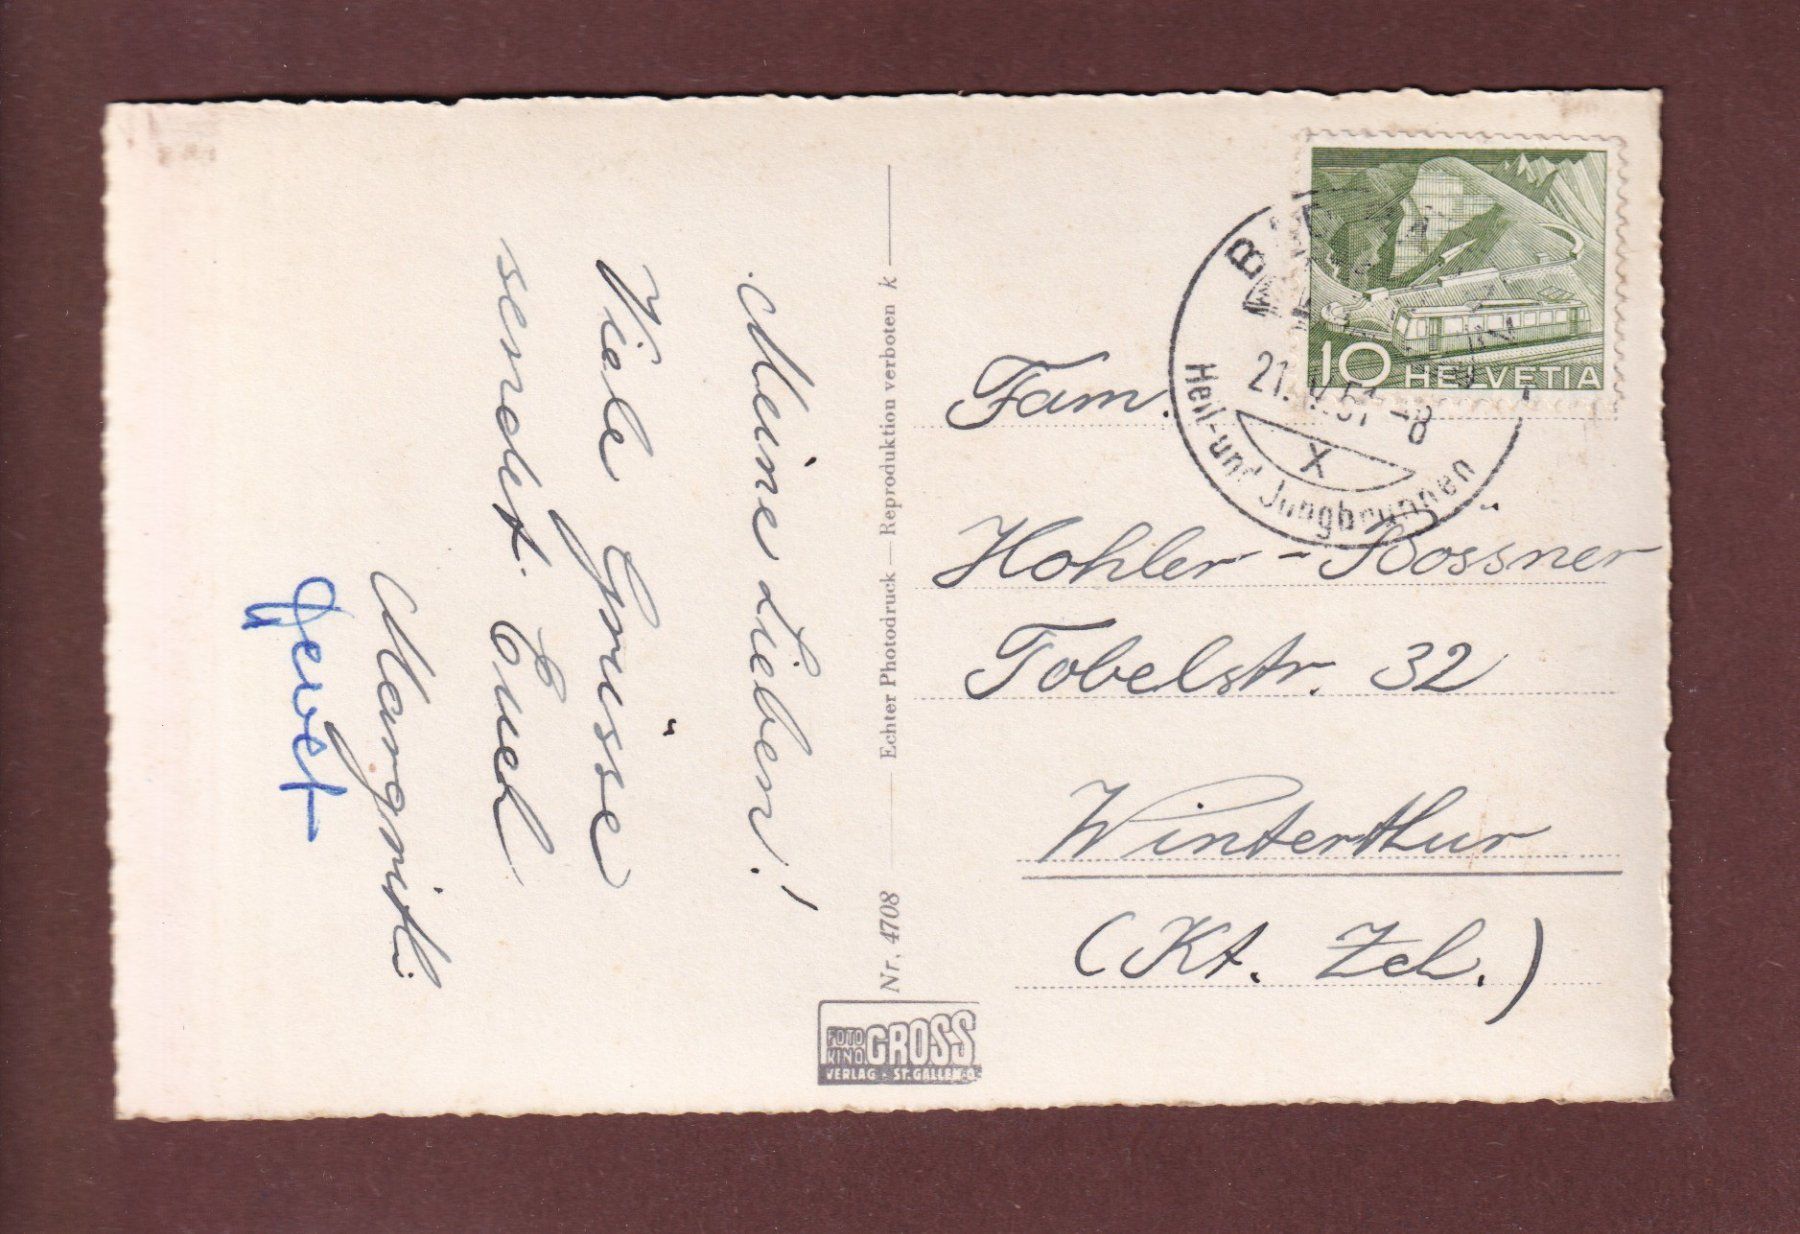 Meine Lieben!
Viele Grüsse
sendet Euch
Margritli.
Echter Photodruck — Reproduktion verboten k
Nr. 4708
FOTO KINO GROSS
VERLAG · ST. GALLEN O.
10 HELVETIA
21. V. 51 -8
X
Heil- und Jungbrunnen
Fam.
Hohler - Bössner
Tobelstr. 32
Winterthur
(Kt. Zch.)